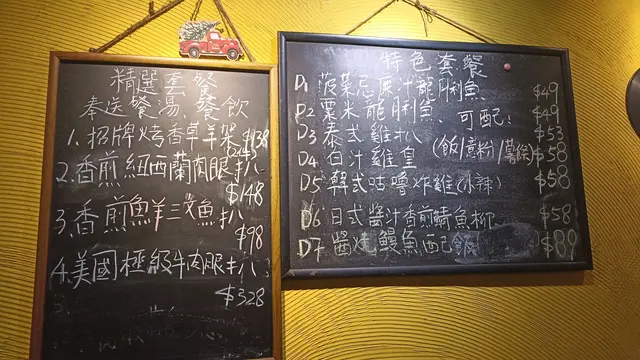 精選套餐
奉送餐湯、餐飲
1. 招牌烤香草羊架 $138
2. 香煎紐西蘭肉眼扒
$148
3. 香煎魚羊三文魚扒
$98
4. 美國極級牛肉眼扒
$328
特色套餐
D1 菠菜忌廉汁龍脷魚 $49
D2 粟米龍脷魚、可配: $49
D3 泰式雞扒 (飯/意粉/薯條) $53
D4 白汁雞皇 $58
D5 韓式咕嚕炸雞(小辣) $58
D6 日式醬汁香煎鯖魚柳 $58
D7 醬燒鰻魚配飯 $89